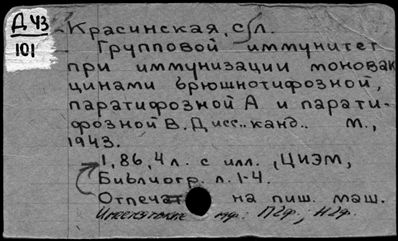 Д 43
101
Красинская, С.Л.
Групповой иммунитет
при иммунизации моновак
цинами брюшнотифозной,
паратифозной А и парати-
фозной В. Дисс.. канд.. м.,
1943.
1, 86, 4 л. с илл. , ЦИЭМ,
Библиогр. л. 1-4.
Отпечат на пиш. маш.